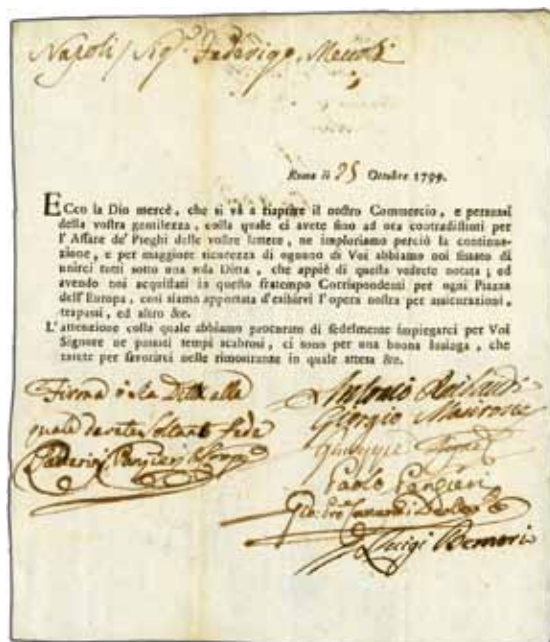 Napoli / Sig.r Federigo
Roma li 25 Ottobre 1799.
ECco la Dio mercè, che si và a riaprire il nostro Commercio, e persuasi
della vostra gentilezza, colla quale ci avete fino ad ora contradistinti per
l'Affare de' Pieghi delle vostre lettere, ne imploriamo perciò la continua-
zione, e per maggiore sicurezza di ognuno di Voi abbiamo noi fissato di
unirci tutti sotto una sola Ditta, che appiè di questa vedrete notata; ed
avendo noi acquistati in questo frattempo Corrispondenti per ogni Piazza
dell'Europa, così siamo apportata d'esibirvi l'opera nostra per assicurazioni,
trapassi, ed altro &c.
L'attenzione colla quale abbiamo procurato di fedelmente impiegarci per Voi
Signore ne passati tempi scabrosi, ci sono per una buona lusinga, che
sarete per favorirci nelle rimostranze in quale attesa &c.
Firma della Ditta alla
quale darete soltanto fede
Antonio
Giorgio
Giuseppe
Paolo Pangieri
Luigi